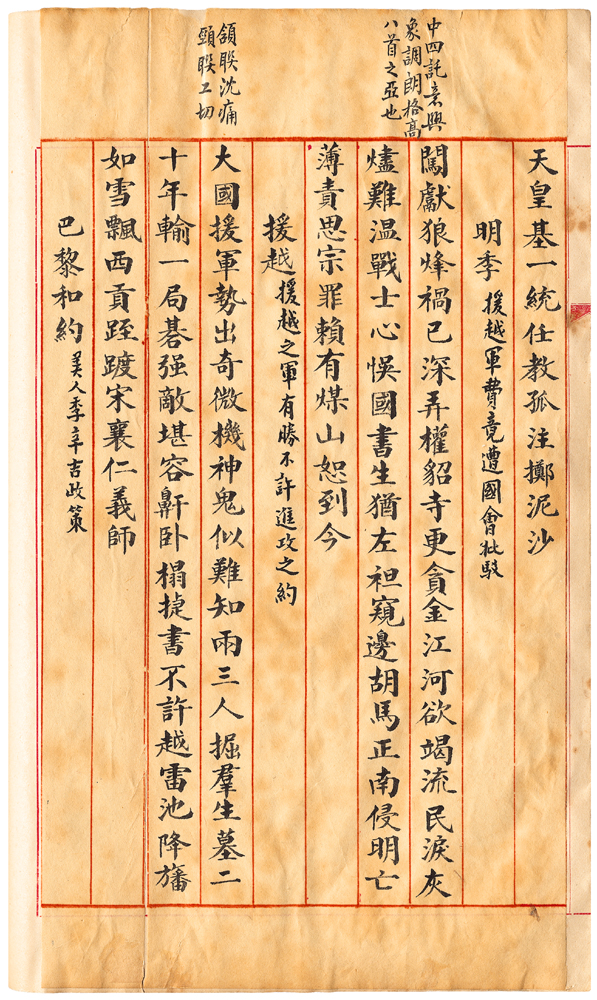 中四託意與
象調朗格髙
八首之亞也
頷聯沈痛
頸聯工切
天皇基一統任教孤注擲泥沙
明季 援越軍費竟遭國會批駁
闖獻狼烽禍已深弄權貂寺更貪金江河欲竭流民淚灰
燼難温戰士心悞國書生猶左袒窺邊胡馬正南侵明亡
薄責思宗罪賴有煤山恕到今
援越 援越之軍有勝不許進攻之約
大國援軍勢出奇微機神鬼似難知兩三人掘羣生墓二
十年輸一局碁强敵堪容鼾卧榻捷書不許越雷池降旛
如雪飄西貢踁踱宋襄仁義師
巴黎和約 美人季辛吉政策